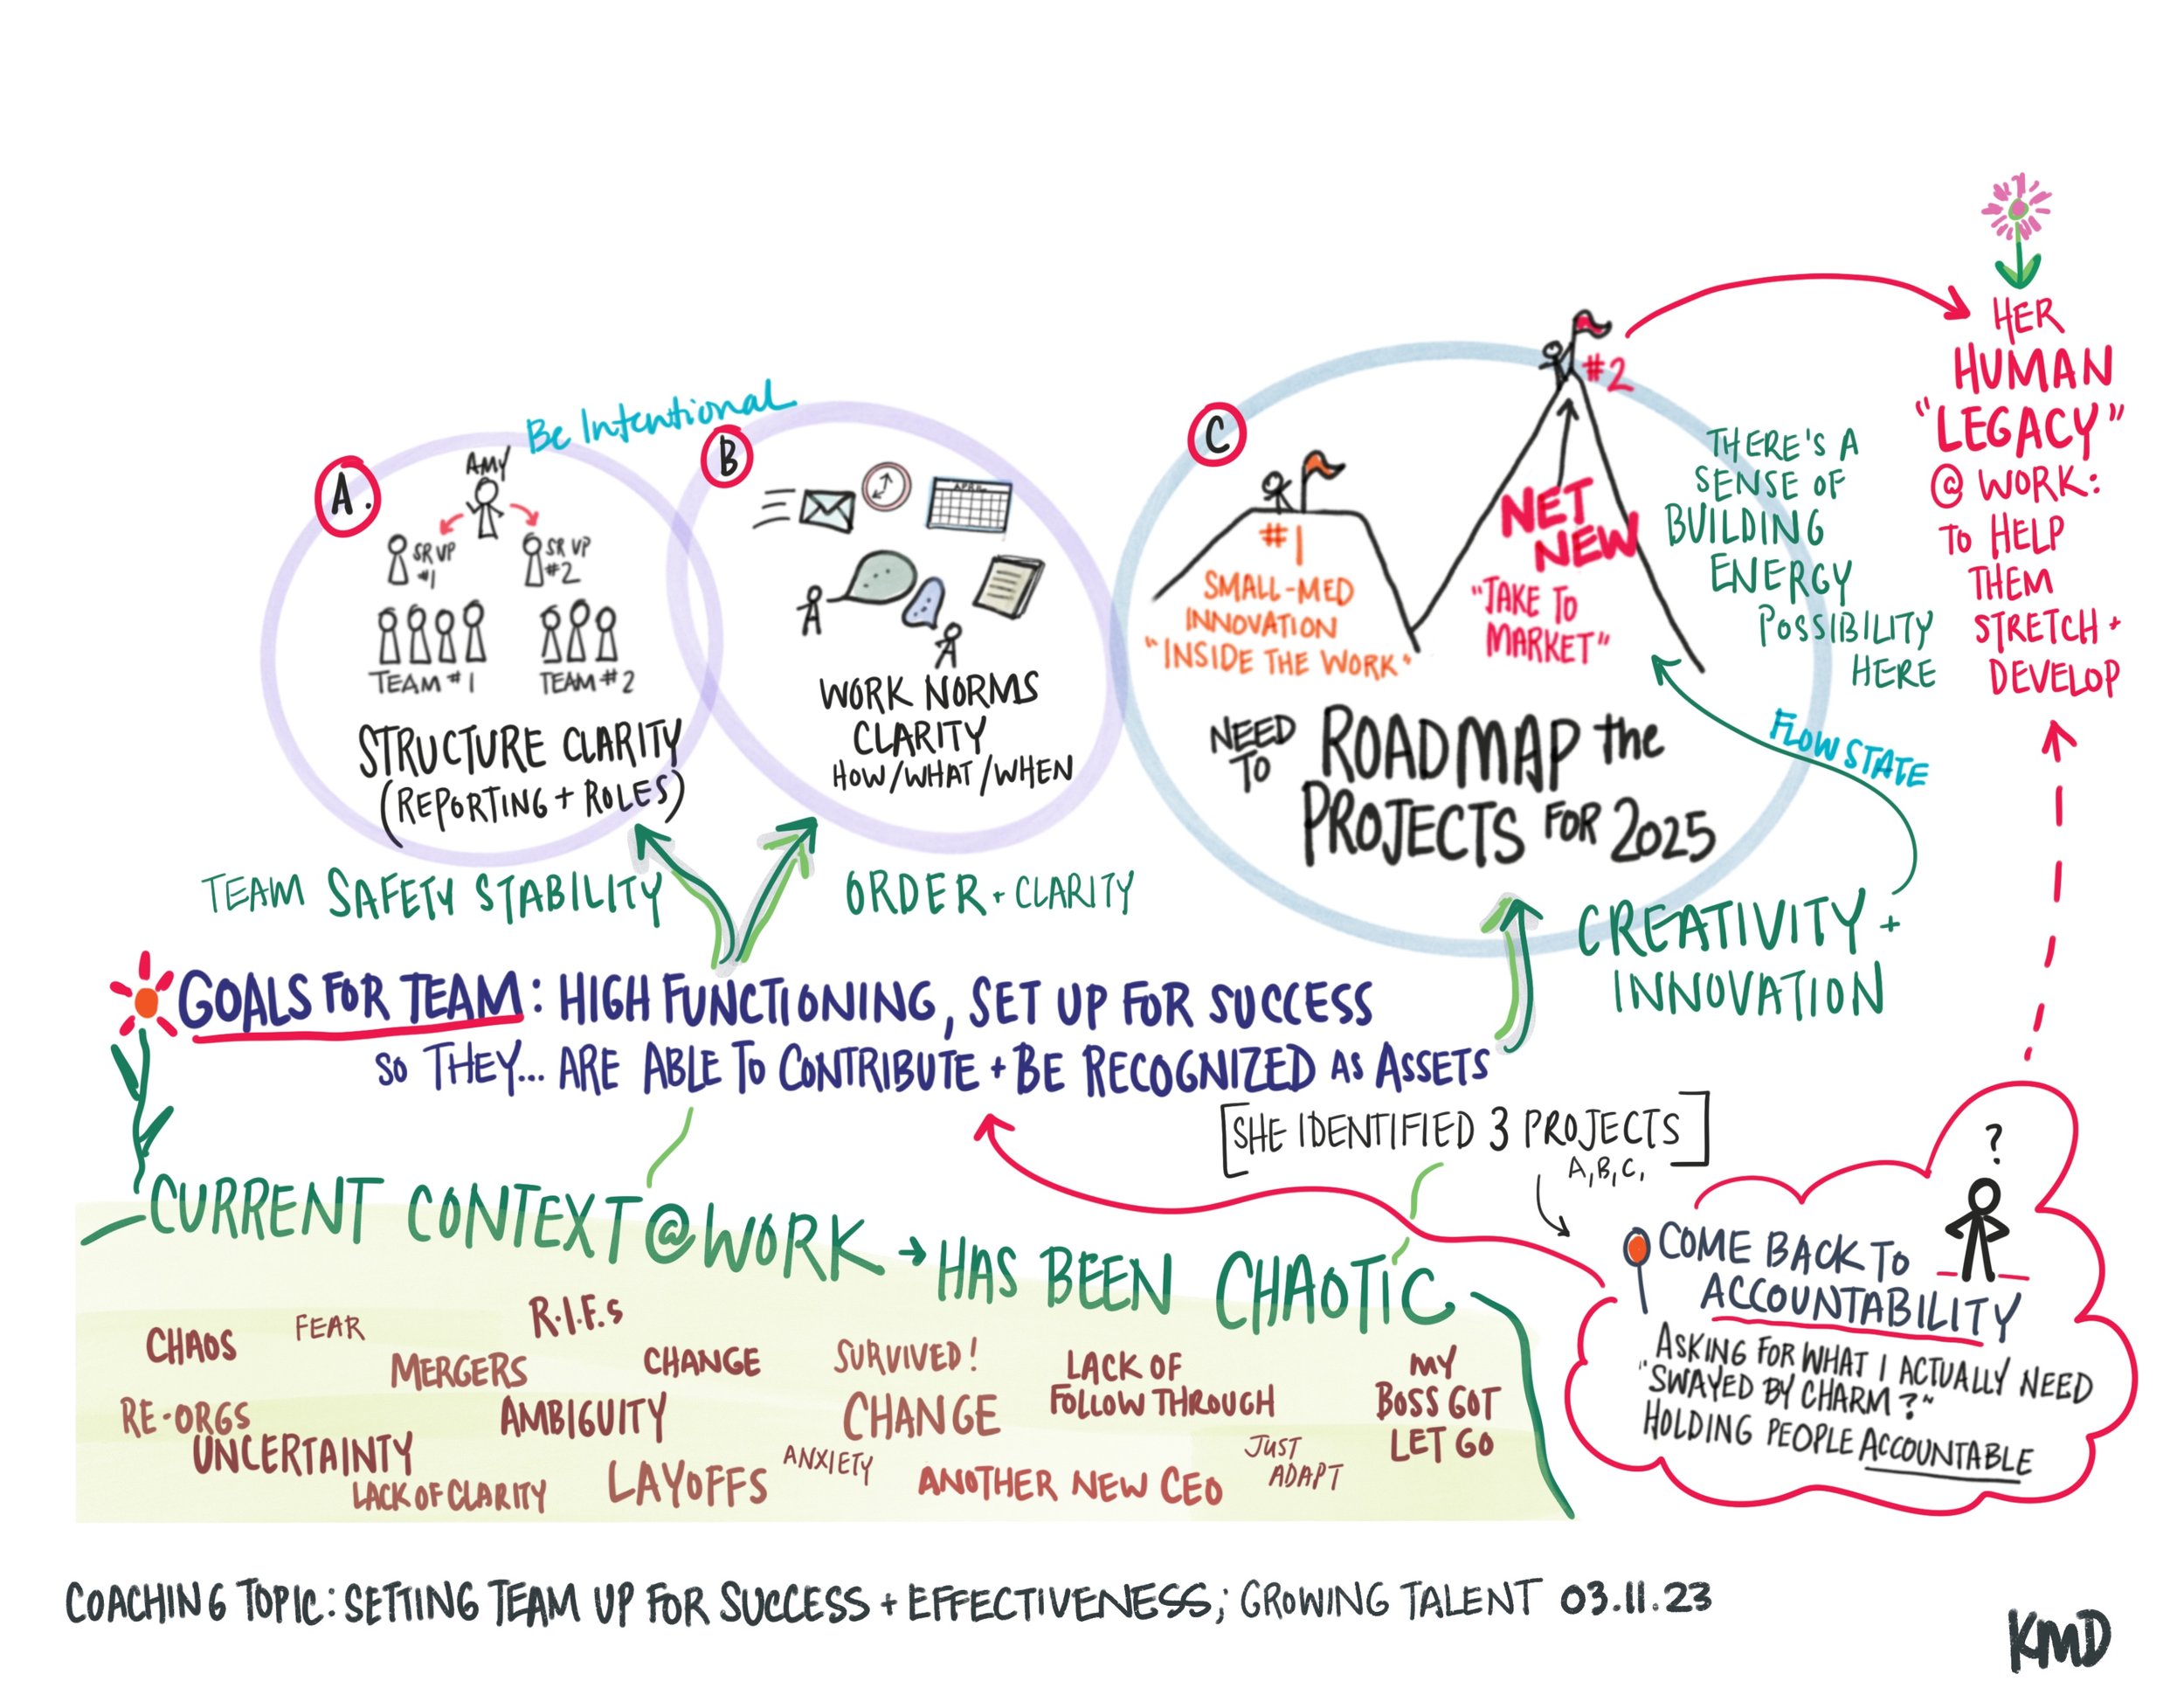 Be Intentional
A.
AMY
SR VP
#1
SR VP
#2
TEAM #1
TEAM #2
STRUCTURE CLARITY
(REPORTING + ROLES)
B
APRIL
WORK NORMS
CLARITY
HOW/WHAT/WHEN
C
#1
SMALL-MED
INNOVATION
"INSIDE THE WORK"
#2
NET
NEW
"TAKE TO
MARKET"
NEED
TO
ROADMAP the
PROJECTS FOR 2025
THERE'S A
SENSE OF
BUILDING
ENERGY
POSSIBILITY
HERE
FLOW STATE
HER
HUMAN
"LEGACY"
@ WORK:
TO HELP
THEM
STRETCH +
DEVELOP
TEAM SAFETY STABILITY
ORDER + CLARITY
CREATIVITY +
INNOVATION
GOALS FOR TEAM: HIGH FUNCTIONING, SET UP FOR SUCCESS
SO THEY... ARE ABLE TO CONTRIBUTE + BE RECOGNIZED AS ASSETS
[SHE IDENTIFIED 3 PROJECTS]
A, B, C,
CURRENT CONTEXT @ WORK → HAS BEEN CHAOTIC
CHAOS
FEAR
R.I.F.s
MERGERS
CHANGE
SURVIVED!
LACK OF
FOLLOW THROUGH
MY
BOSS GOT
LET GO
RE-ORGS
AMBIGUITY
CHANGE
UNCERTAINTY
ANXIETY
JUST
ADAPT
LACK OF CLARITY
LAYOFFS
ANOTHER NEW CEO
?
COME BACK TO
ACCOUNTABILITY
ASKING FOR WHAT I ACTUALLY NEED
"SWAYED BY CHARM?"
HOLDING PEOPLE ACCOUNTABLE
COACHING TOPIC: SETTING TEAM UP FOR SUCCESS + EFFECTIVENESS; GROWING TALENT 03.11.23
KMD